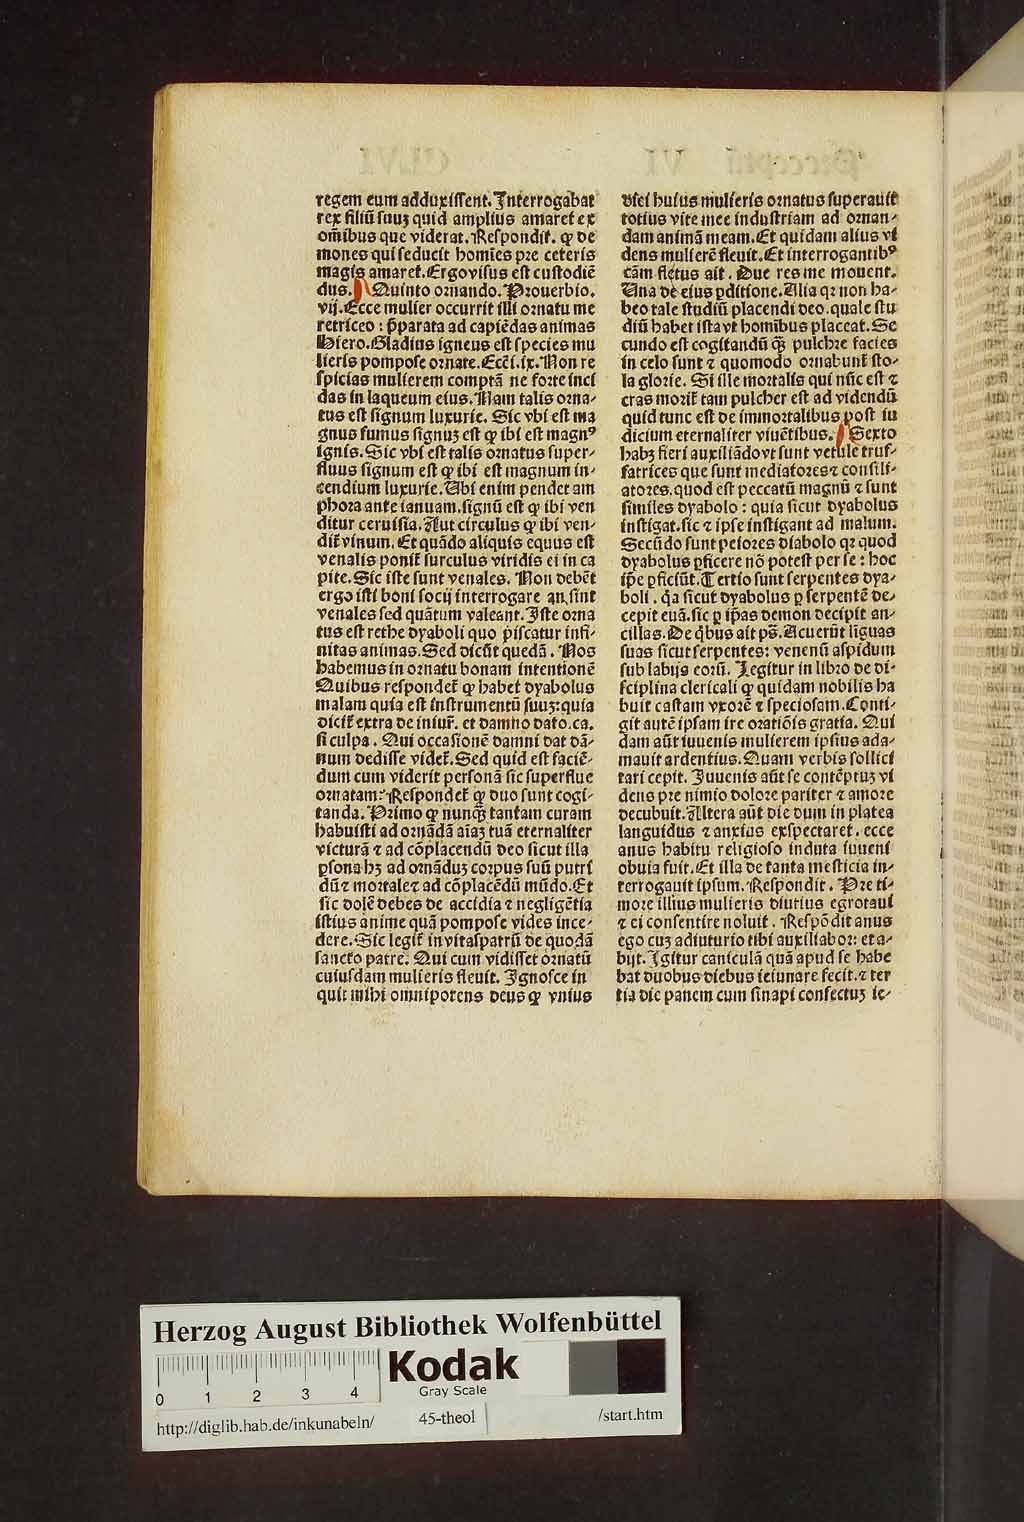 regem eum adduxissent. Interrogabat
rex filiū suuȝ quid amplius amaret ex
om̄ibus que viderat. Respondit̄. ꝙ de
mones qui seducūt homīes pre ceteris
magis amaret. Ergo visus est custodiē
dus. Quinto ornando. Prouerbio.
vij. Ecce mulier occurrit illi ornatu me
retriceo : p̄parata ad capiēdas animas
Hiero. Gladius igneus est species mu
lieris pompose ornate. Ecc̄i. ix. Non re
spicias mulierem comptā ne forte inci
das in laqueum eius. Nam talis orna-
tus est signum luxurie. Sic vbi est ma
gnus fumus signuȝ est ꝙ ibi est magnꝰ
ignis. Sic vbi est talis ornatus super-
fluus signum est ꝙ ibi est magnum in-
cendium luxurie. Ubi enim pendet am
phora ante ianuam. signū est ꝙ ibi ven
ditur ceruisia. Aut circulus ꝙ ibi ven-
dit̄ vinum. Et quādo aliquis equus est
venalis ponit̄ surculus viridis ei in ca
pite. Sic iste sunt venales. Non debēt
ergo isti boni socij interrogare an sint
venales sed quātum valeant. Iste orna
tus est rethe dyaboli quo piscatur infi-
nitas animas. Sed dicūt quedā. Nos
habemus in ornatu bonam intentionē
Quibus respondet̄ ꝙ habet dyabolus
malam quia est instrumentū suuȝ: quia
dicit̄ extra de iniur̄. et damno dato. ca.
si culpa. Qui occasionē damni dat dā-
num dedisse videt̄. Sed quid est faciē-
dum cum viderit personā sic superflue
ornatam: Respondet̄ ꝙ duo sunt cogi-
tanda. Primo ꝙ nunqȝ̄ tantam curam
habuisti ad ornādā aīaȝ tuā eternaliter
victurā ⁊ ad cōplacendū deo sicut illa
ꝑsona hȝ ad ornāduȝ corpus suū putri
dū ⁊ mortale ⁊ ad cōplacēdū mūdo. Et
sic dolē debes de accidia ⁊ negligētia
istius anime quā pompose vides ince-
dere. Sic legit̄ in vitaspatrū de quodā
sancto patre. Qui cum vidisset ornatū
cuiusdam mulieris fleuit. Ignosce in
quit mihi omnipotens deus ꝙ vnius
diei huius mulieris ornatus superauit
totius vite mee industriam ad ornan-
dam animā meam. Et quidam alius vi
dens mulierē fleuit. Et interrogantibꝰ
cām fletus ait. Due res me mouent.
Una de eius ꝑditione. Alia qꝛ non ha-
beo tale studiū placendi deo. quale stu
diū habet ista vt homībus placeat. Se
cundo est cogitandū qȝ̄ pulchre facies
in celo sunt ⁊ quomodo ornabunt̄ sto-
la glorie. Si ille mortalis qui nūc est ⁊
cras morit̄ tam pulcher est ad videndū
quid tunc est de immortalibus post iu
dicium eternaliter viuētibus. Sexto
habȝ fieri auxiliādo vt sunt vetule truf-
fatrices que sunt mediatores ⁊ consili-
atores. quod est peccatū magnū ⁊ sunt
similes dyabolo : quia sicut dyabolus
instigat. sic ⁊ ipse instigant ad malum.
Secūdo sunt peiores diabolo qꝛ quod
dyabolus ꝑficere nō potest per se : hoc
ip̄e ꝑficiūt. Tertio sunt serpentes dya-
boli. q̇a sicut dyabolus ꝑ serpentē de-
cepit euā. sic ꝑ ip̄as demon decipit an-
cillas. De q̇bus ait ps̄. Acuerūt līguas
suas sicut serpentes: venenū aspidum
sub labijs eorū. Legitur in libro de di-
sciplina clericali ꝙ quidam nobilis ha
buit castam vxorē ⁊ speciosam. Conti-
git autē ipsam ire oratiōis gratia. Qui
dam aūt iuuenis mulierem ipsius ada-
mauit ardentius. Quam verbis sollici
tari cepit. Iuuenis aūt se contēptuȝ vi
dens pre nimio dolore pariter ⁊ amore
decubuit. Altera aūt die dum in platea
languidus ⁊ anxius exspectaret. ecce
anus habitu religioso induta iuueni
obuia fuit. Et illa de tanta mesticia in-
terrogauit ipsum. Respondit. Pre ti-
more illius mulieris diutius egrotaui
⁊ ei consentire noluit. Respōdit anus
ego cuȝ adiutorio tibi auxiliabor: et a-
bijt. Igitur caniculā quā apud se habe
bat duobus diebus ieiunare fecit. ⁊ ter
tia die panem cum sinapi confectuȝ ie-
Herzog August Bibliothek Wolfenbüttel
Kodak
Gray Scale
0 1 2 3 4
http://diglib.hab.de/inkunabeln/ 45-theol /start.htm